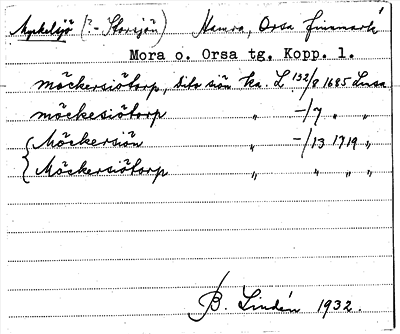 Myckelsjö (?- Storsjön) Hamra, Orsa finnmark
Mora o. Orsa tg. Kopp. l.
möckersiötorp, dito siön Ka. L 132/8 1685 Lusa
möckesiötorp " -/7 " "
Möckersiön " -/13 1719 "
Möckersiötorp " " " "
B. Lindén 1932.